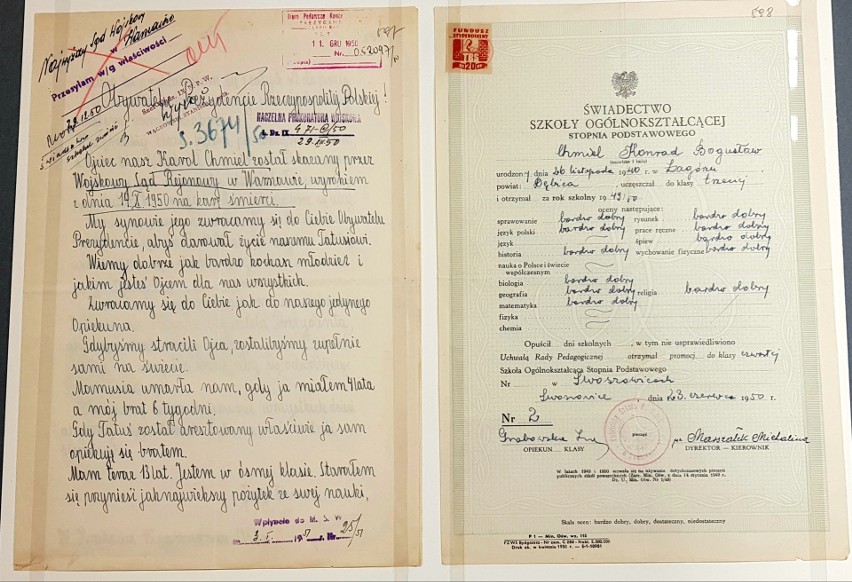 Najwyższy Sąd Wojskowy
w Warszawie
Przesyłam w/g właściwości
597
11 GRU 1950
Obywatelu Prezydencie Rzeczypospolitej Polskiej!
NACZELNA PROKURATURA WOJSKOWA
S.3674/50
Ojciec nasz Karol Chmiel został skazany przez
Wojskowy Sąd Rejonowy w Warszawie, wyrokiem
z dnia
1950 na karę śmierci.
My synowie jego zwracamy się do Ciebie Obywatelu
Prezydencie, abyś darował życie naszemu Tatusiowi.
Wiemy dobrze jak bardzo kochasz młodzież i
jakim jesteś Ojcem dla nas wszystkich.
Zwracamy się do Ciebie jak do naszego jedynego
Opiekuna.
Gdybyśmy stracili Ojca, zostalibyśmy zupełnie
sami na świecie.
Mamusia umarła nam, gdy ja miałem 4 lata
a mój brat 6 tygodni.
Gdy Tatuś został aresztowany właściwie ja sam
opiekuję się bratem.
Mam teraz 13 lat. Jestem w ósmej klasie. Starałem
się przynieść jak największy pożytek ze swej nauki,
Wpłynęło do M. S. W.
25/51
598
FUNDUSZ
20
ŚWIADECTWO
SZKOŁY OGÓLNOKSZTAŁCĄCEJ
STOPNIA PODSTAWOWEGO
Chmiel Konrad Bogusław
urodzony dnia 26 listopada 1940 r. w Zagórzu
powiat: Dębica, uczęszczał do klasy trzeciej
i otrzymał za rok szkolny 1949/50
oceny następujące:
sprawowanie bardzo dobry rysunek bardzo dobry
język polski bardzo dobry prace ręczne bardzo dobry
język śpiew bardzo dobry
historia bardzo dobry wychowanie fizyczne bardzo dobry
nauka o Polsce i świecie
współczesnym
biologia bardzo dobry
geografia bardzo dobry religia bardzo dobry
matematyka bardzo dobry
fizyka
chemia
Opuścił dni szkolnych, w tym nie usprawiedliwiono
Uchwałą Rady Pedagogicznej otrzymał promocję do klasy czwartej
Szkoła Ogólnokształcąca Stopnia Podstawowego
Nr w Swoszowicach
dnia 23 czerwca 1950 r.
Nr 2
pieczęć
Grabowska
Marszalik Michalina
OPIEKUN KLASY
DYREKTOR — KIEROWNIK
Skala ocen: bardzo dobry, dobry, dostateczny, niedostateczny
P 1 — Min. Ośw. wz. 112